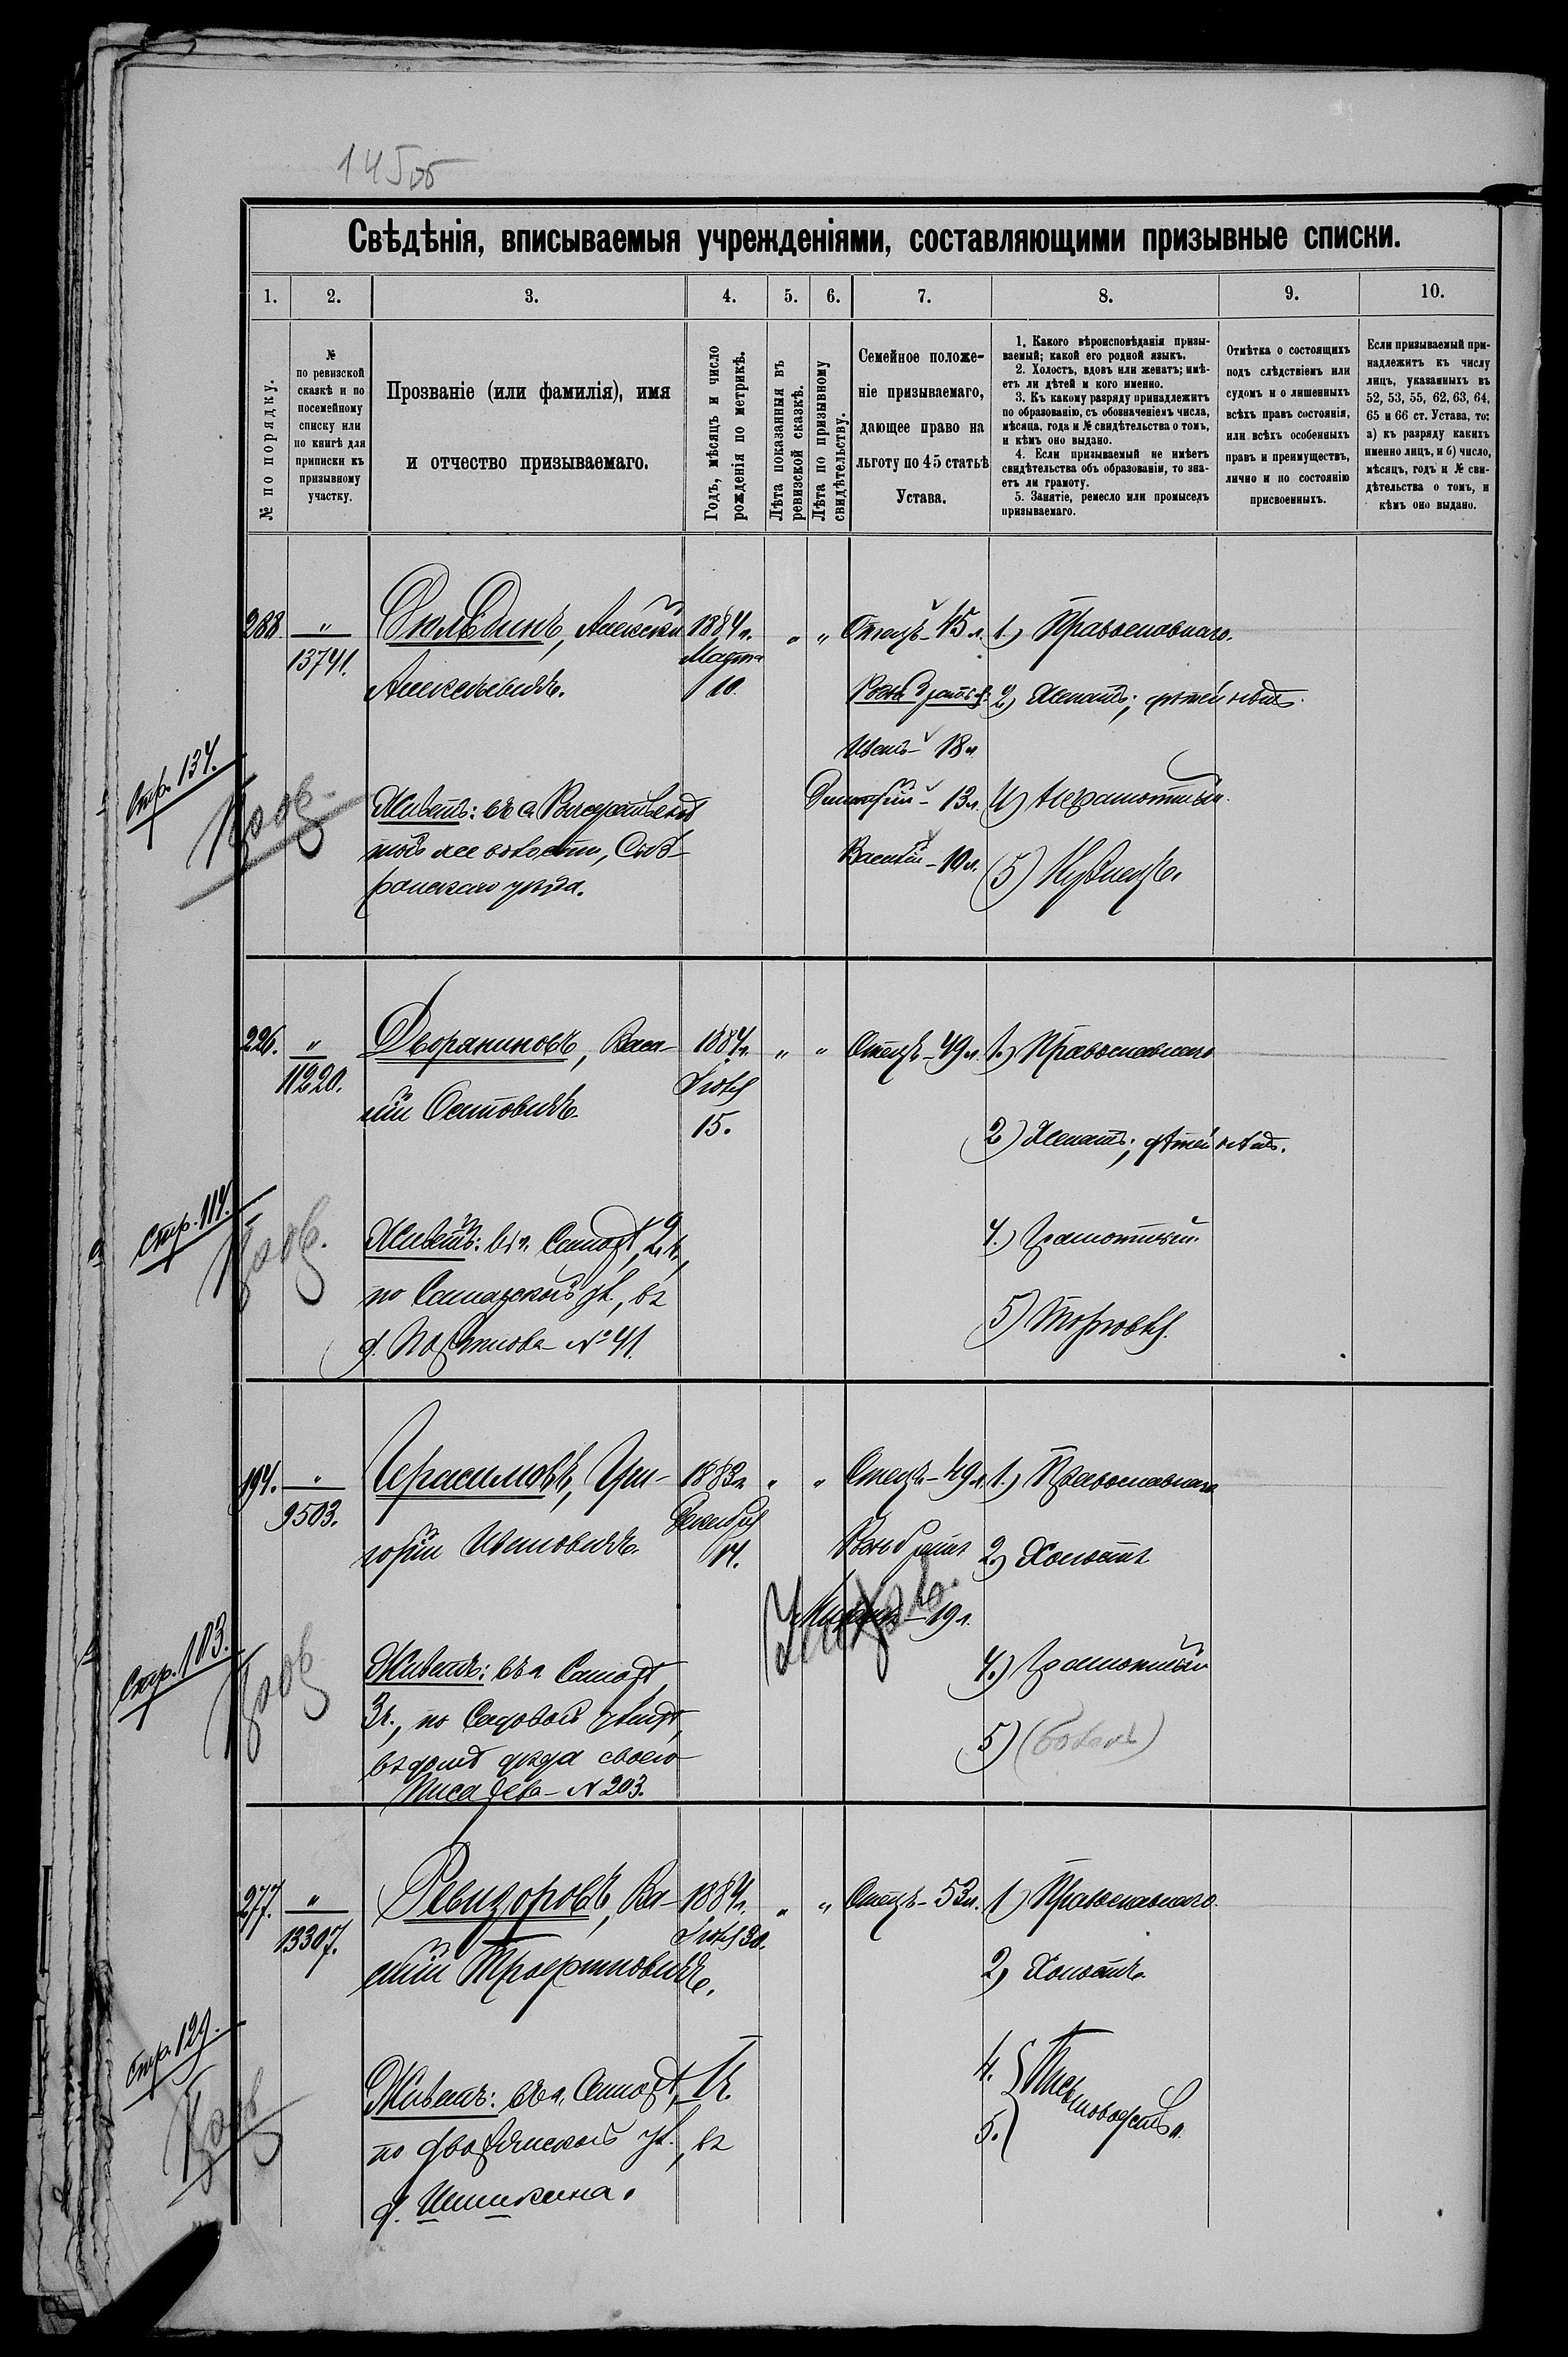 145 об
Свѣдѣнія, вписываемыя учрежденіями, составляющими призывные списки.
1. 2. 3. 4. 5. 6. 7. 8. 9. 10.
№ по порядку.
№
по ревизской
сказкѣ и по
посемейному
списку или
по книгѣ для
приписки къ
призывному
участку.
Прозваніе (или фамилія), имя
и отчество призываемаго.
Годъ, мѣсяцъ и число
рожденія по метрикѣ.
Лѣта показанныя въ
ревизской сказкѣ.
Лѣта по призывному
свидѣтельству.
Семейное положе-
ніе призываемаго,
дающее право на
льготу по 45 статьѣ
Устава.
1. Какого вѣроисповѣданія призы-
ваемый; какой его родной языкъ.
2. Холостъ, вдовъ или женатъ; имѣ-
етъ ли дѣтей и кого именно.
3. Къ какому разряду принадлежитъ
по образованію, съ обозначеніемъ числа,
мѣсяца, года и № свидѣтельства о томъ,
и кѣмъ оно выдано.
4. Если призываемый не имѣетъ
свидѣтельства объ образованіи, то зна-
етъ ли грамоту.
5. Занятіе, ремесло или промыселъ
призываемаго.
Отмѣтка о состоящихъ
подъ слѣдствіемъ или
судомъ и о лишенныхъ
всѣхъ правъ состоянія,
или всѣхъ особенныхъ
правъ и преимуществъ,
лично и по состоянію
присвоенныхъ.
Если призываемый при-
надлежитъ къ числу
лицъ, указанныхъ въ
52, 53, 55, 62, 63, 64,
65 и 66 ст. Устава, то:
а) къ разряду какихъ
именно лицъ, и б) число,
мѣсяцъ, годъ и № сви-
дѣтельства о томъ, и
кѣмъ оно выдано.
288. "
13741.
Алексѣй
Алексѣевичъ.
1884 г.
Марта
10.
" "
Отецъ - 45 л.
Родн. братья:
Иванъ - 18 л.
Дмитрій - 13 л.
Василій - 10 л.
1.) Православнаго.
2) Женатъ; дѣтей нѣтъ.
4) Неграмотный.
5) Кузнецъ.
Стр. 134.
Живетъ: въ с.
той же волости, Сыз-
ранскаго уѣзда.
226. "
11220.
Дворяниновъ, Васи-
лій Осиповичъ.
1884 г.
Іюля
15.
" "
Отецъ - 49 л.
1.) Православнаго
2) Женатъ; дѣтей нѣтъ.
4.) Грамотный.
5) Торговля.
Стр. 114.
Живетъ: въ г. Самарѣ, 2 ч.,
по Самарской ул., въ
д. № 41.
194. "
9503.
Герасимовъ, Гри-
горій Ивановичъ.
1883 г.
Декабря
14.
" "
Отецъ - 49 л.
Родн. братъ
19 л.
1.) Православнаго
2.) Холостъ
4.) Грамотный
5)
Стр. 103.
Живетъ: въ г. Самарѣ,
3 ч., по Садовой улицѣ,
въ домѣ дѣда своего
Писарева - № 203.
277. "
13307.
Ревизоровъ, Ва-
силій Трофимовичъ.
1884 г.
Іюля 30.
" "
Отецъ - 53 л.
1) Православнаго.
2) Холостъ.
4.
5. Письмоводство.
Стр. 129.
Живетъ: въ г. Самарѣ, 1 ч.
по Дворянской ул., въ
д. Шишкина.